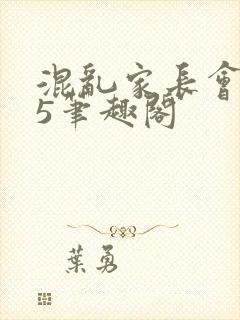 混亂家長會
5筆趣閣
葉勇